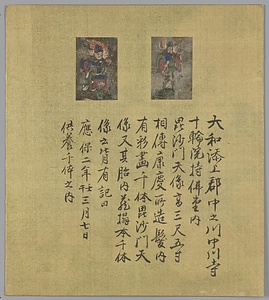 大和添上郡中之川中川寺
十輪院持佛堂内
毘沙門天像高三尺五寸
相傳康慶所造髻内
有彩畫千体毘沙門天
像又其胎内花摺本千体
像五此有記曰
應保二年壬三月七日
供養千体之内